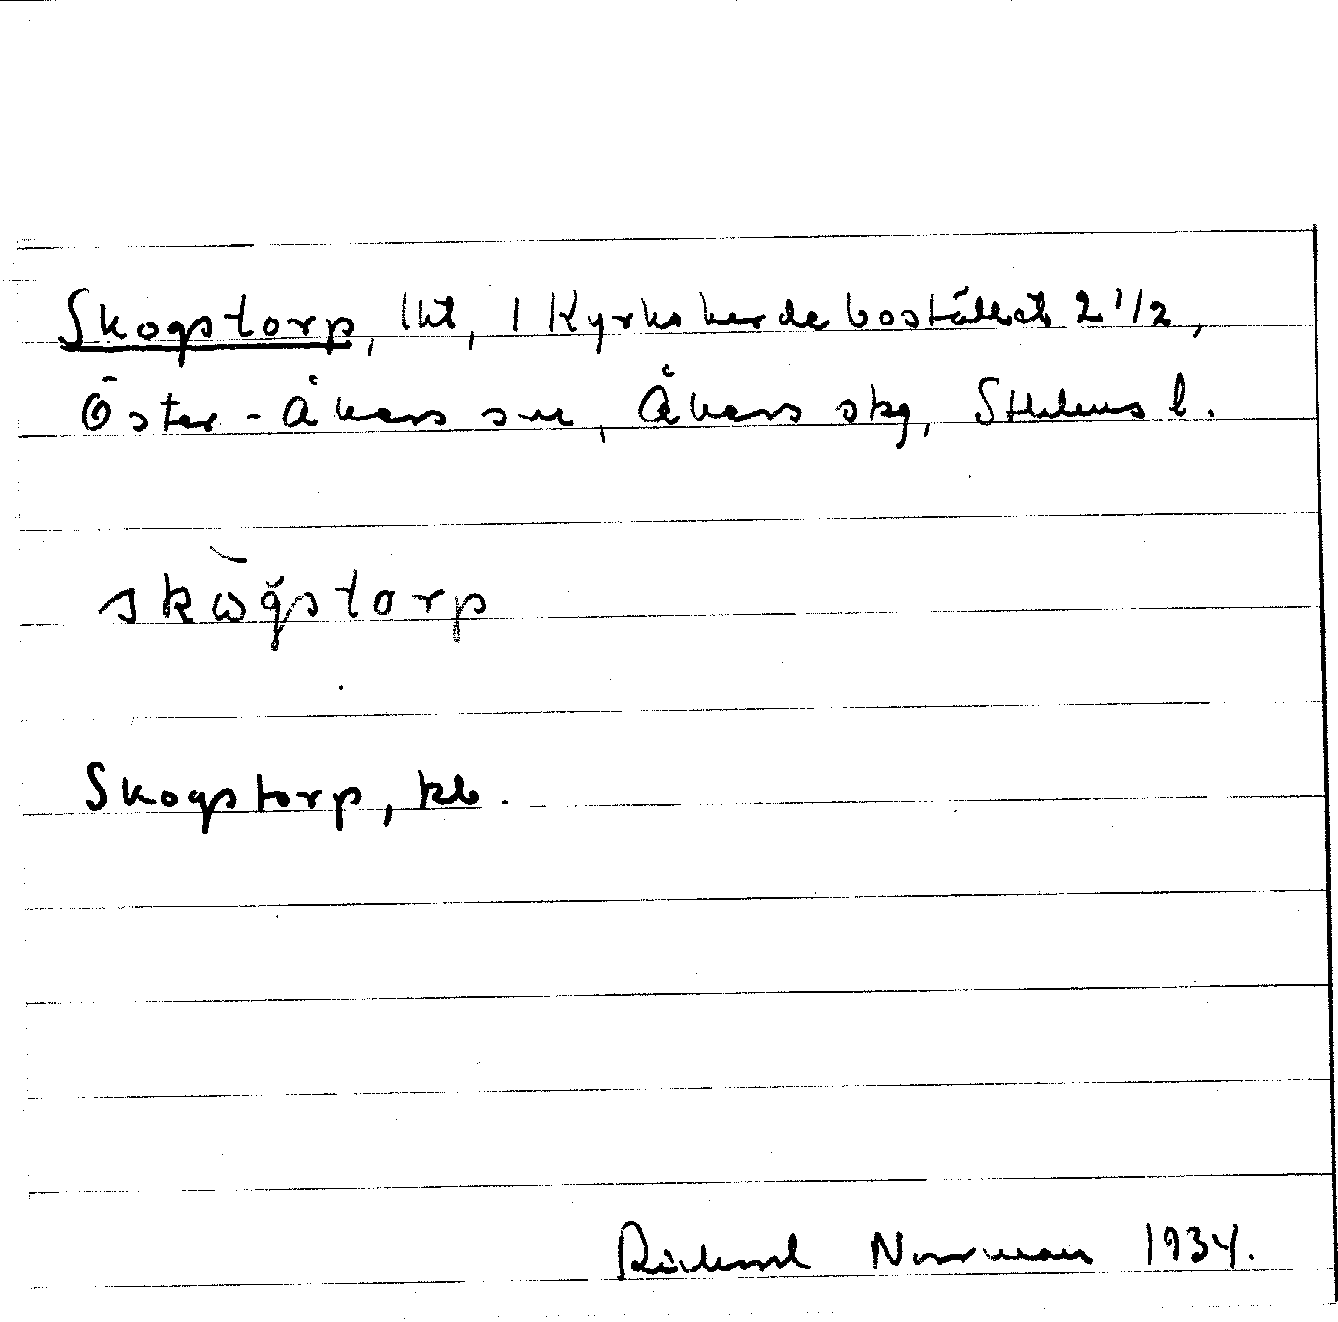 Skogstorp, lht, 1 Kyrkoherdebostället 2 1/2,
Öster-Åkers sn, Åkers skg, Sthlms l.
skɷ̀g̊storp
Skogstorp, kb.
Rickard Norrman 1934.